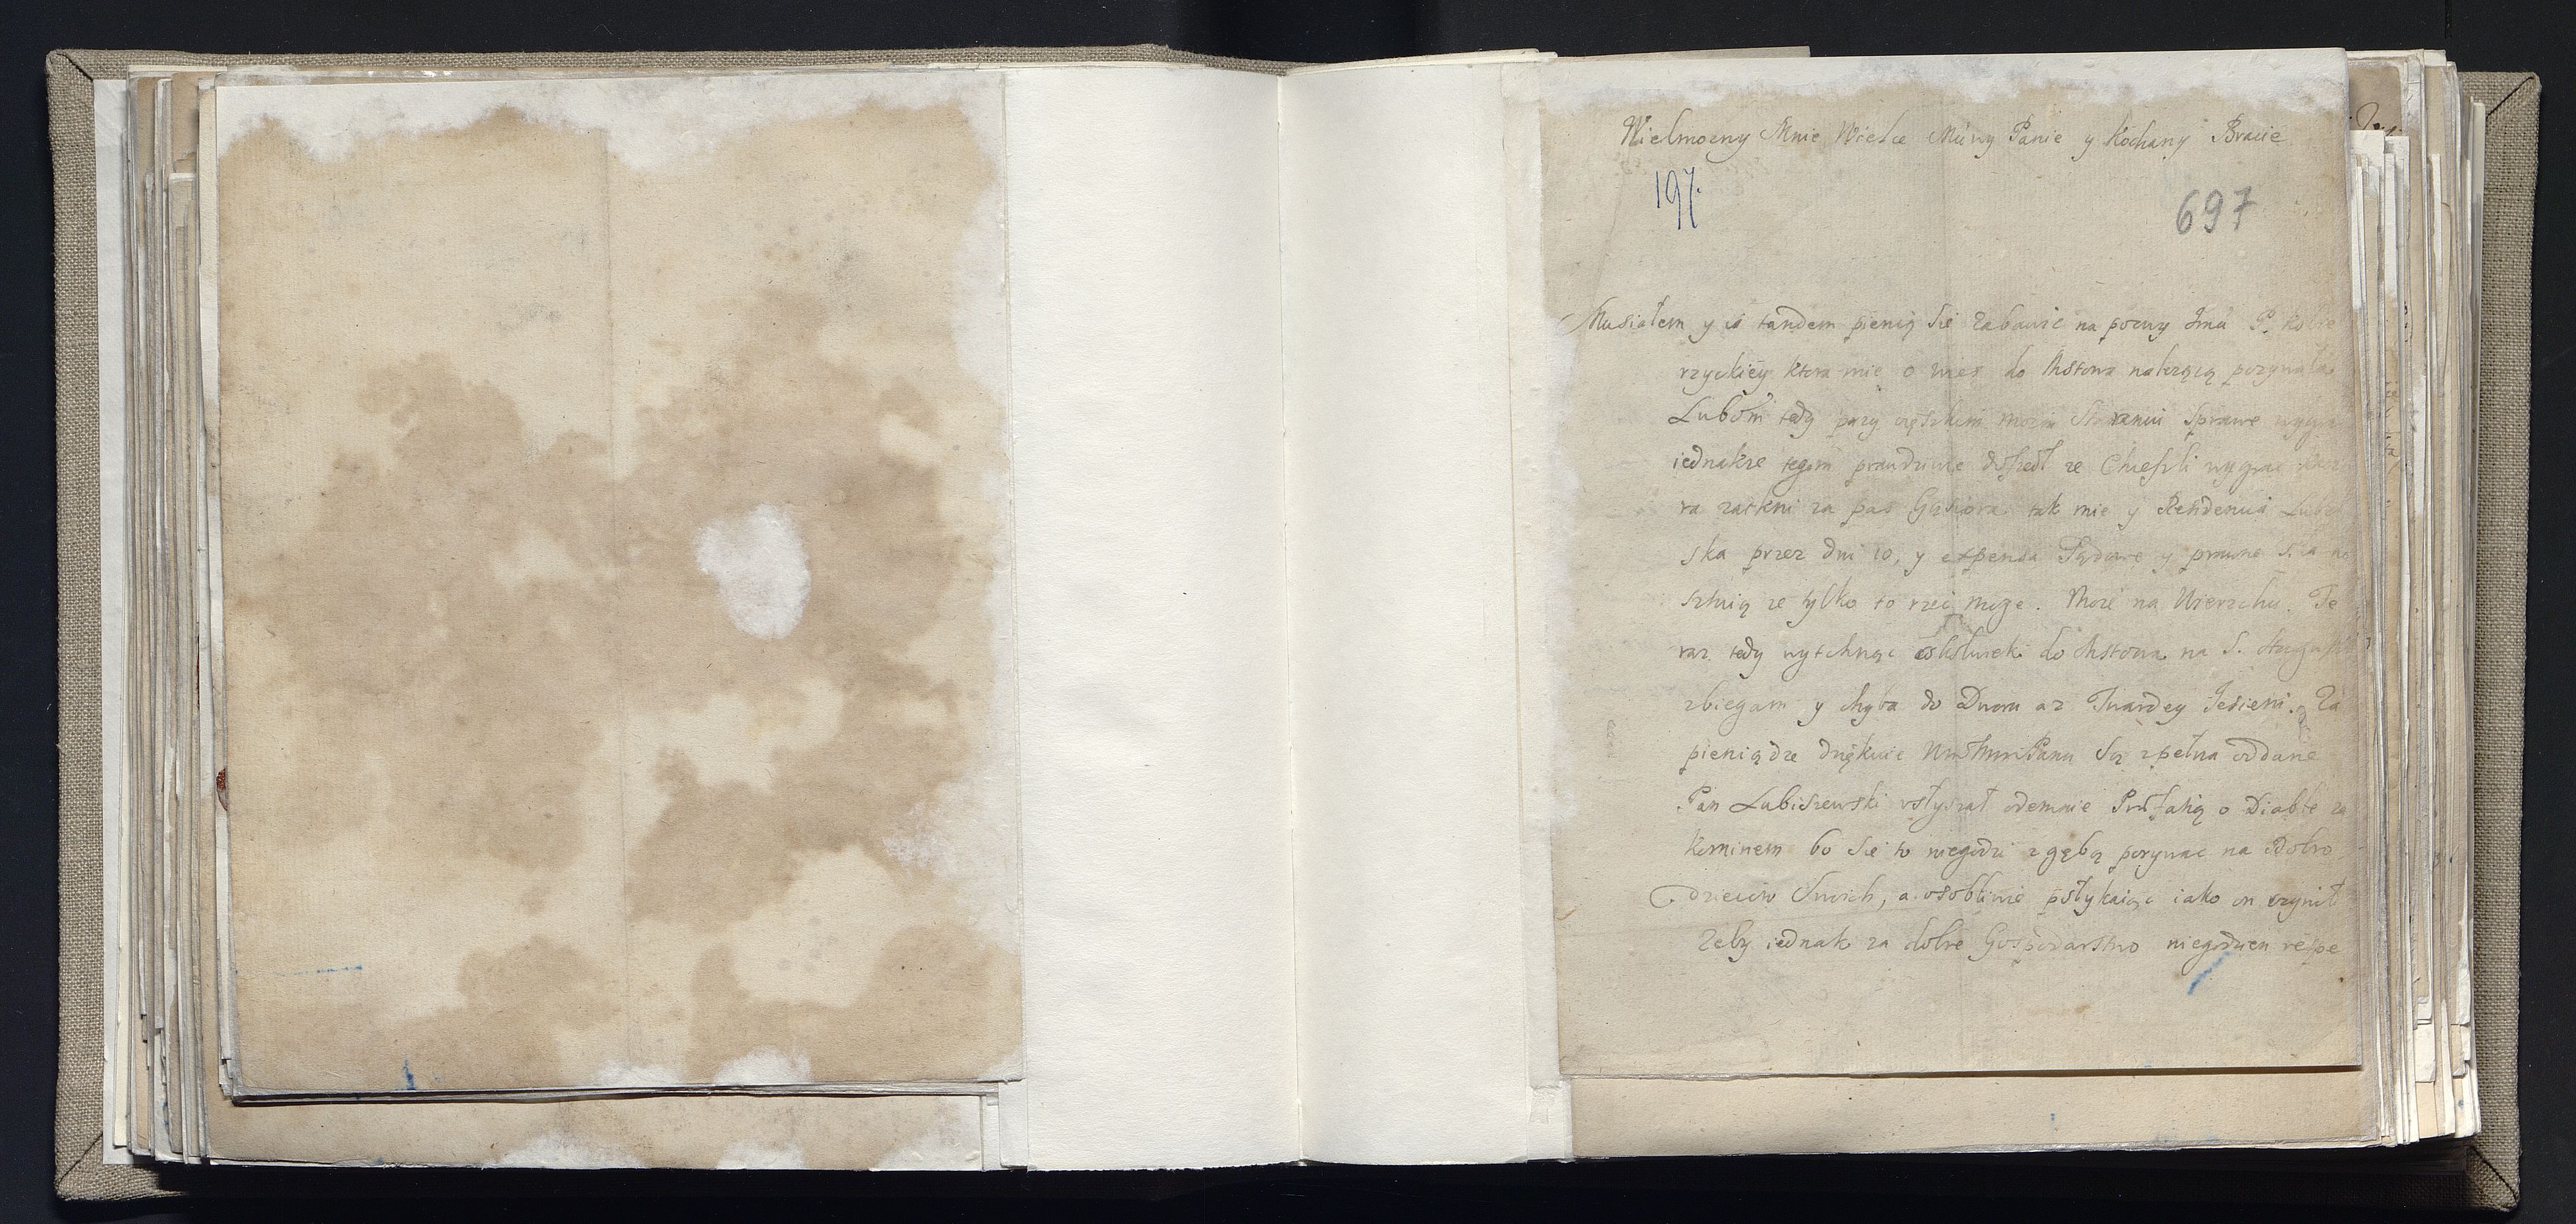 Wielmozny Mnie Wielce Mciwy Panie y Kochany Bracie
197.
697
Musiałem y ia tandem pienią się zabawic na pozwy Jmci P. Kobie
rzyckiey ktora mie o wies do Mstowa nalezącą pozywała
Lubom tedy przy cięszkim moim staraniu sprawe
iednakze tegom prawdziwie doszedł ze Chceszli wygrac
ra zatkni za pas Gąsiora tak mie y Residencia Lubel
ska przez dni 10, y expensa y prawne
sztuią ze tylko to rzec moge. Moie na Wierzchu. Te
raz tedy wytchnąc do Mstowa na S. August
zbiegam y chyba do Dworu az Twardey Jesieni. Za
pieniądze dziękuie WmMmPanu Są zpełna oddane
Pan Lubiszewski usłyszał odemnie o Diable za
kominem bo sie to niegodzi z gębą porywac na Dobro
dzieiow Swoich, a osobliwie iako on czynił
Zeby iednak za dobre Gospodarstwo niegodzien respe